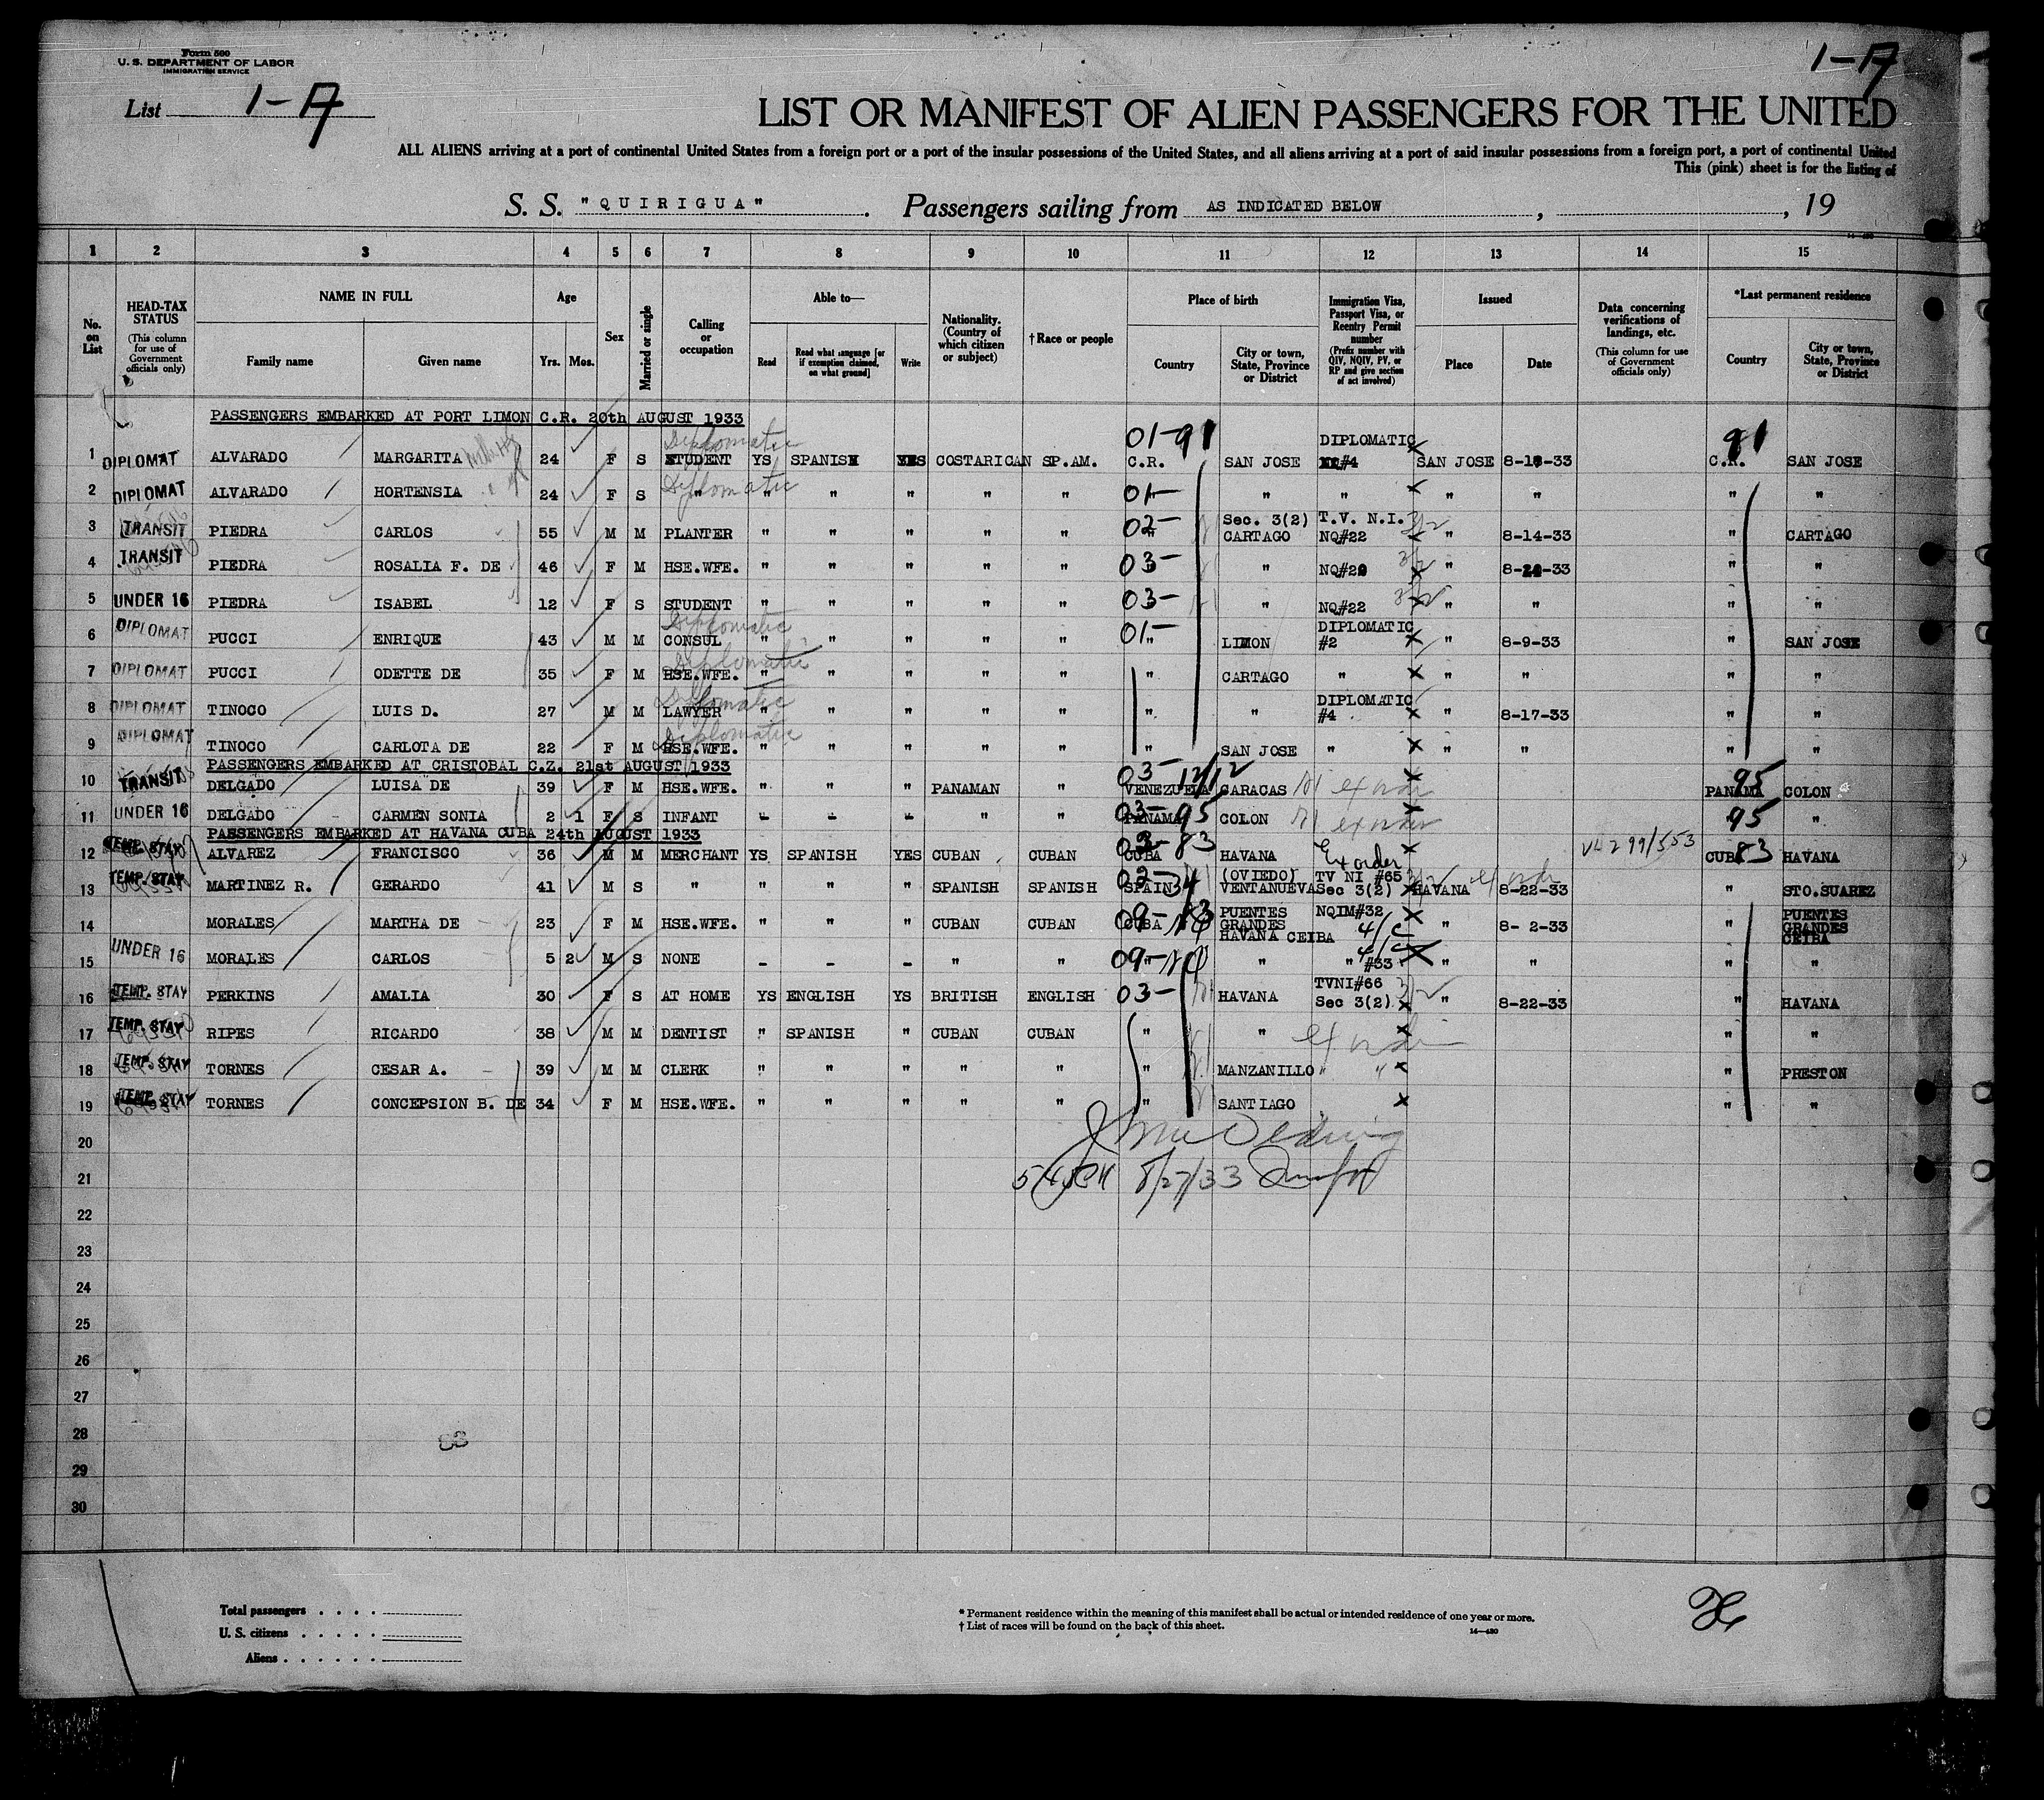 Form 500
U. S. DEPARTMENT OF LABOR
IMMIGRATION SERVICE
1-A
List 1-A
LIST OR MANIFEST OF ALIEN PASSENGERS FOR THE UNITED
ALL ALIENS arriving at a port of continental United States from a foreign port or a port of the insular possessions of the United States, and all aliens arriving at a port of said insular possessions from a foreign port, a port of continental United
This (pink) sheet is for the listing of
S. S. "QUIRIGUA". Passengers sailing from AS INDICATED BELOW , , 19
1 2 3 4 5 6 7 8 9 10 11 12 13 14 15
No. on List
HEAD-TAX STATUS (This column for use of Government officials only)
NAME IN FULL Family name Given name
Age Yrs. Mos.
Sex
Married or single
Calling or occupation
Able to— Read Read what language [or if exemption claimed, on what ground] Write
Nationality. (Country of which citizen or subject)
† Race or people
Place of birth Country City or town, State, Province or District
Immigration Visa, Passport Visa, or Reentry Permit number (Prefix number with QIV, NQIV, PV, or RP and give section of act involved)
Issued Place Date
Data concerning verifications of landings, etc. (This column for use of Government officials only)
*Last permanent residence Country City or town, State, Province or District
PASSENGERS EMBARKED AT PORT LIMON C.R. 20th AUGUST 1933
1 DIPLOMAT ALVARADO MARGARITA 24 F S Diplomatic STUDENT YS SPANISH YES COSTARICAN SP.AM. 01-91 C.R. SAN JOSE DIPLOMATIC #4 SAN JOSE 8-18-33 91 C.R. SAN JOSE
2 DIPLOMAT ALVARADO HORTENSIA 24 F S Diplomatic " " " " " " 01- " " " " " " "
3 TRANSIT PIEDRA CARLOS 55 M M PLANTER " " " " " 02- " Sec. 3(2) CARTAGO T.V. N.I. NQ#22 " 8-14-33 " CARTAGO
4 TRANSIT PIEDRA ROSALIA F. DE 46 F M HSE.WFE. " " " " " 03- " NQ#20 " 8-24-33 " "
5 UNDER 16 PIEDRA ISABEL 12 F S STUDENT " " " " " 03- " NQ#22 " " " "
6 DIPLOMAT PUCCI ENRIQUE 43 M M Diplomatic CONSUL " " " " " 01- " LIMON DIPLOMATIC #2 " 8-9-33 " SAN JOSE
7 DIPLOMAT PUCCI ODETTE DE 35 F M Diplomatic HSE.WFE. " " " " " " CARTAGO " " " " "
8 DIPLOMAT TINOCO LUIS D. 27 M M Diplomatic LAWYER " " " " " " " DIPLOMATIC #4 " 8-17-33 " "
9 DIPLOMAT TINOCO CARLOTA DE 22 F M Diplomatic HSE.WFE. " " " " " " SAN JOSE " " " " "
PASSENGERS EMBARKED AT CRISTOBAL C.Z. 21st AUGUST 1933
10 TRANSIT DELGADO LUISA DE 39 F M HSE.WFE. " " " PANAMAN " 03- VENEZUELA CARACAS 95 PANAMA COLON
11 UNDER 16 DELGADO CARMEN SONIA 2 1 F S INFANT - - - " " 03-95 PANAMA COLON 95 " "
PASSENGERS EMBARKED AT HAVANA CUBA 24th AUGUST 1933
12 TEMP. STAY ALVAREZ FRANCISCO 36 M M MERCHANT YS SPANISH YES CUBAN CUBAN 03-83 CUBA HAVANA Ex order CUBA 83 HAVANA
13 TEMP. STAY MARTINEZ R. GERARDO 41 M S " " " " SPANISH SPANISH 02-34 SPAIN (OVIEDO) VENTANUEVA TV NI #65 Sec 3(2) HAVANA 8-22-33 " STO.SUAREZ
14 MORALES MARTHA DE 23 F M HSE.WFE. " " " CUBAN CUBAN 09-83 CUBA PUENTES GRANDES HAVANA CEIBA NQIM#32 4/c " 8- 2-33 " PUENTES GRANDES CEIBA
15 UNDER 16 MORALES CARLOS 5 2 M S NONE - - - " " 09- " " " #33 4/c " " " "
16 TEMP. STAY PERKINS AMALIA 30 F S AT HOME YS ENGLISH YS BRITISH ENGLISH 03- HAVANA TVNI#66 Sec 3(2) " 8-22-33 " HAVANA
17 TEMP. STAY RIPES RICARDO 38 M M DENTIST " SPANISH " CUBAN CUBAN " " " "
18 TEMP. STAY TORNES CESAR A. 39 M M CLERK " " " " " " MANZANILLO " " " PRESTON
19 TEMP. STAY TORNES CONCEPSION B. DE 34 F M HSE.WFE. " " " " " " SANTIAGO " "
20
21 8/27/33
22
23
24
25
26
27
28
83
29
30
Total passengers . . . .
U. S. citizens . . . . .
Aliens . . . . . .
* Permanent residence within the meaning of this manifest shall be actual or intended residence of one year or more.
† List of races will be found on the back of this sheet.
14—430